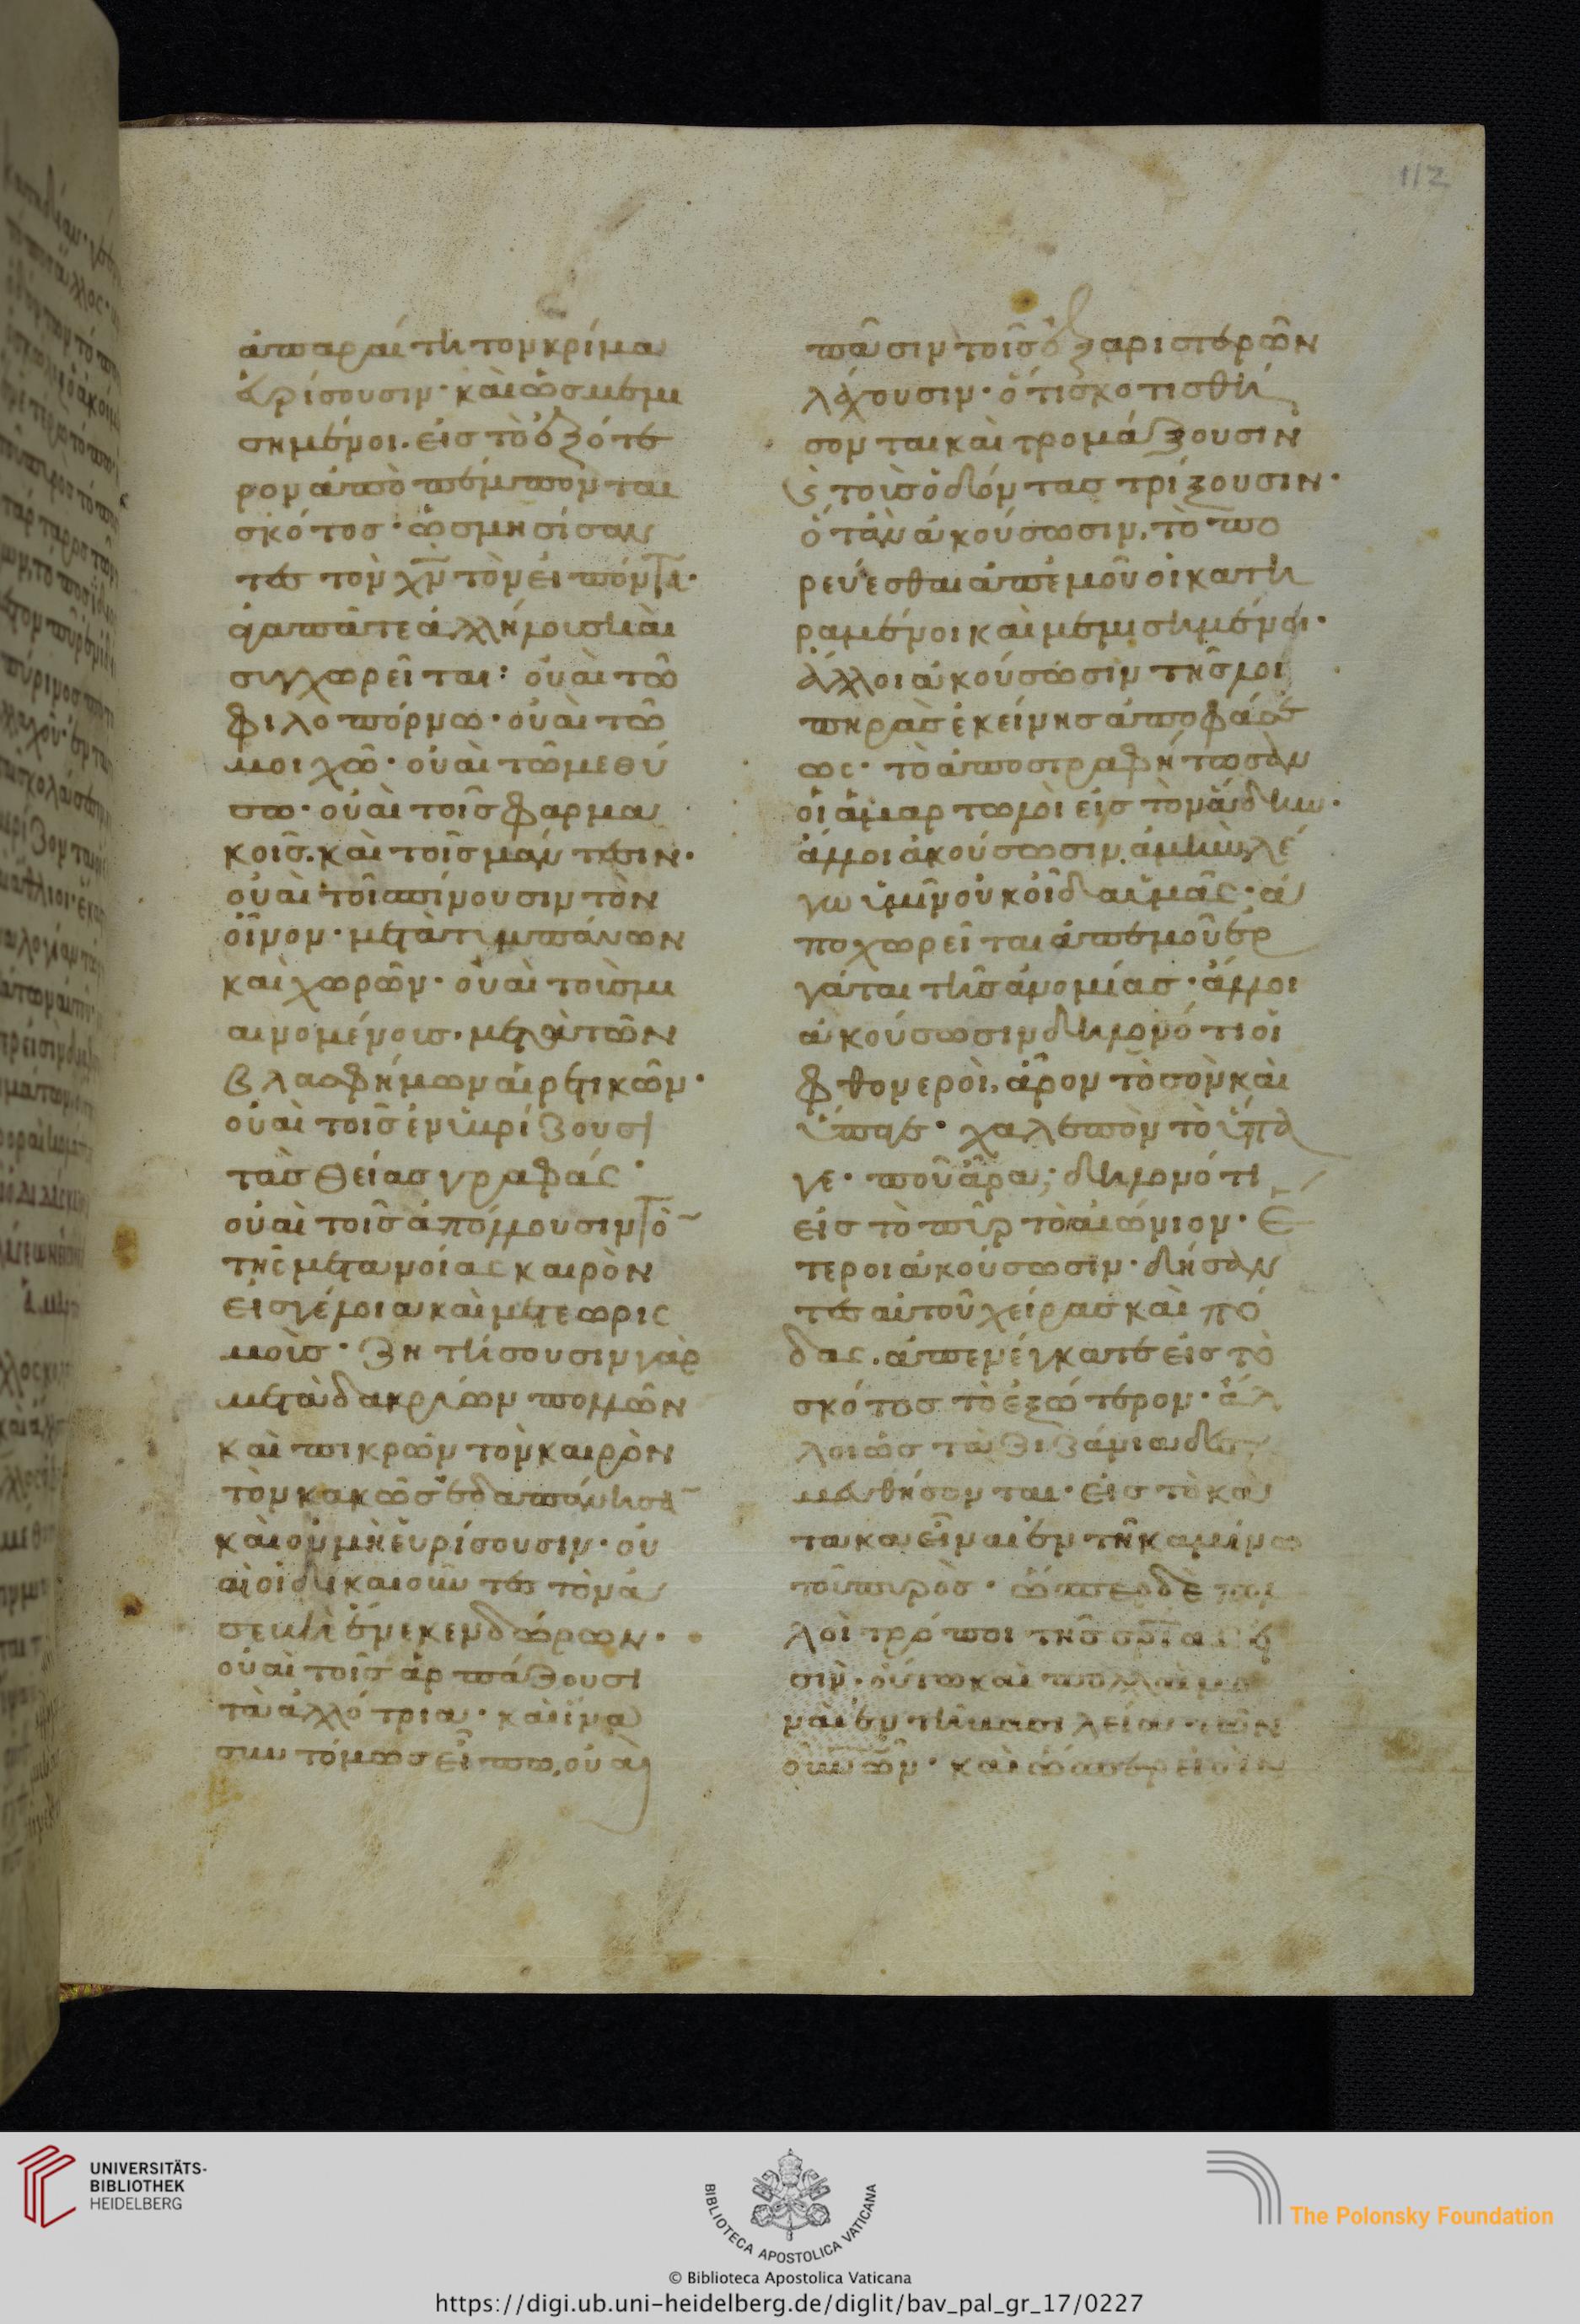 112
ἀπαραίτητον κρίμα
εὑρίσουσιν· καὶ ὡς μεμι
σημένοι. εἰς τὸ ἐξότε
ρον ἀποπέμπονται
σκότος· ὡς μησίσαν
τες τὸν χν τὸν εἰπόντα·
ἀγαπᾶτε ἀλλήλους καὶ
συγχωρεῖται: οὐαὶ τῶ
φιλοπόρνω· οὐαὶ τῶ
μοιχῶ· οὐαὶ τῶ μεθύ
σω· οὐαὶ τοῖς φαρμα
κοῖς. καὶ τοῖς μάντεσιν·
οὐαὶ τοῖ πίνουσιν τὸν
οἶνον· μετὰ τιμπάνων
καὶ χωρῶν· οὐαὶ τοῖς μι
αινομένοις. μετὰ τῶν
βλασφήμων αἱρετικῶν·
οὐαὶ τοῖς ἐνυβρίζουσι
τὰς θείας γραφάς·
οὐαὶ τοῖς ἀπολλουσιν τὸ
τῆς μετανοίας καιρὸν
εἰς γέλοια καὶ μετεωρις
μοῖς· ζητήσουσιν γὰρ
μετὰ δακρύων πολλῶν
καὶ πικρῶν τὸν καιρὸν
τὸν κακῶς ἐδαπάνησα
καὶ οὐ μὴ εὑρίσουσιν· οὐ
αὶ οἱ δικαιοῦντες τὸν ἀ
σεβὴ ἕνεκεν δώρων·
οὐαὶ τοῖς ἁρπάζουσι
τὰ ἀλλότρια· καὶ ἵνα
συντόμως εἴπω, οὐαὶ
πᾶσιν τοῖς ἐξ ἀριστερῶν
λάχουσιν· ὅτι σκοτισθή
σονται καὶ τρομάξουσιν
ς τοὺς ὀδόντας τρίζουσιν·
ὅταν ἀκούσωσιν, τὸ πο
ρεύεσθαι ἀπ' ἐμοῦ οἱ κατη
ραμένοι καὶ μεμισημένοι·
ἄλλοι ἀκούσωσιν τῆς λοι
πηρᾶς ἐκείνης ἀποφάσε
ως· τὸ ἀποστραφήτωσαν
οἱ ἁμαρτωλοὶ εἰς τὸν ἅδην·
ἄλλοι ἀκούσωσιν, ἀμὴν λέ
γω ὑμῖν οὐκ οἶδα ὑμᾶς· ἀ
ποχωρεῖται ἀπ' ἐμοῦ ἐρ
γάται τῆς ἀνομίας· ἄλλοι
ἀκούσωσιν δηλονότι οἱ
φθονεροὶ, ἆρον τὸ σὸν καὶ
ὕπαγε· χαλεπὸν τὸ ὕπα
γε· ποῦ ἆρα; δηλονότι
εἰς τὸ πῦρ τὸ αἰώνιον· ἕ
τεροι ἀκούσωσιν· δήσαν
τες αὐτοῦ χείρας καὶ πό
δας. ἀπενέγκατε εἰς τὸ
σκότος τὸ ἐξώτερον· ἄλ
λοι ὡς τὰ ζιζάνια δεσ
μευθήσονται· εἰς τὸ κα
τακαεῖναι ἐν τῆ καμίνω
τοῦ πυρὸς· ὥσπερ δὲ πολ
λοὶ τρόποι τῆς σρίας εἰ
σὶν· οὕτω καὶ πολλαὶ μο
ναὶ ἐν τῆ βασιλεία τῶν
οὐνῶν· καὶ ὥσπερ εἰσὶν
UNIVERSITÄTS-
BIBLIOTHEK
HEIDELBERG
BIBLIOTECA APOSTOLICA VATICANA
The Polonsky Foundation
© Biblioteca Apostolica Vaticana
https://digi.ub.uni-heidelberg.de/diglit/bav_pal_gr_17/0227